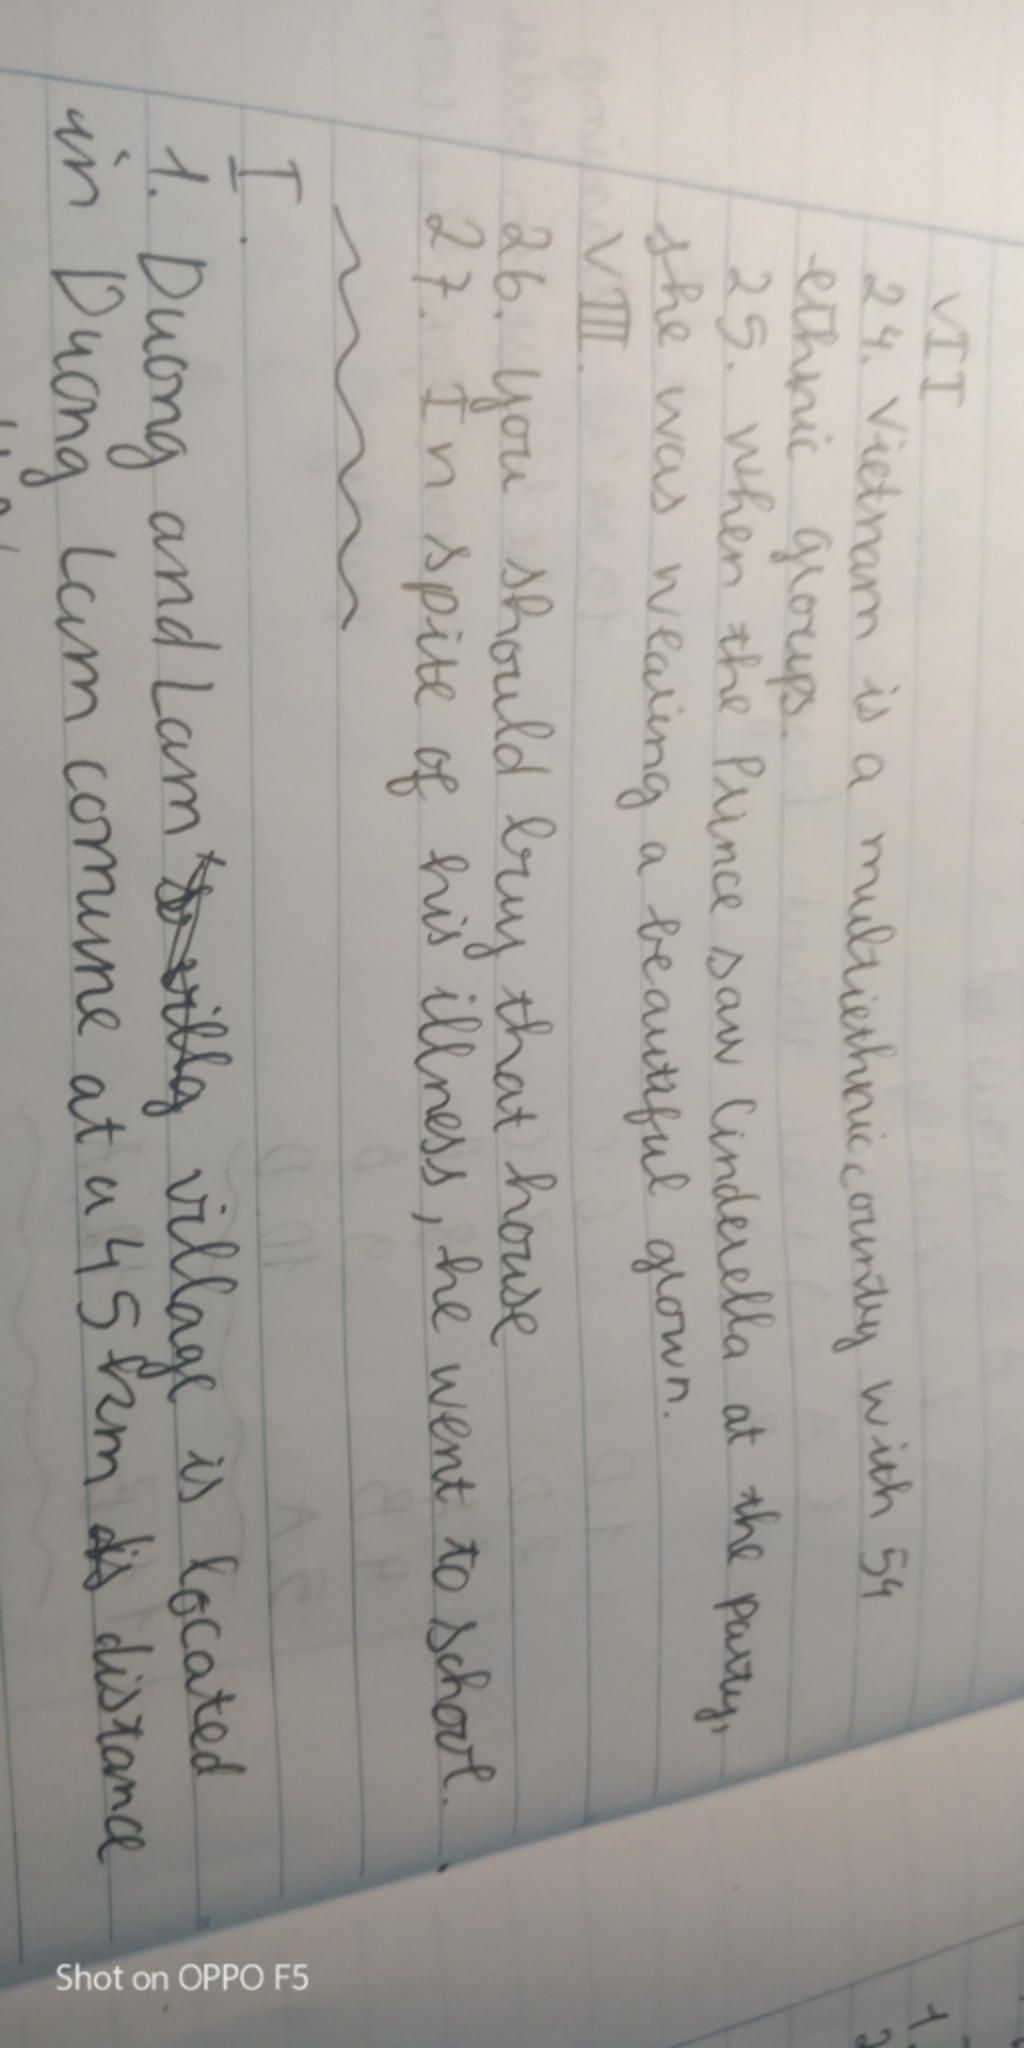 VII
24. Vietnam is a multiethnic country with 54
ethnic groups.
25. When the Prince saw Cinderella at the party,
she was wearing a beautiful grown.
VIII.
26. you should bruy that house
27. In spite of his illness, he went to school.
I.
1. Duong and Lam village is located
in Duong Lam comune at a 45 km distance
Shot on OPPO F5
1
2